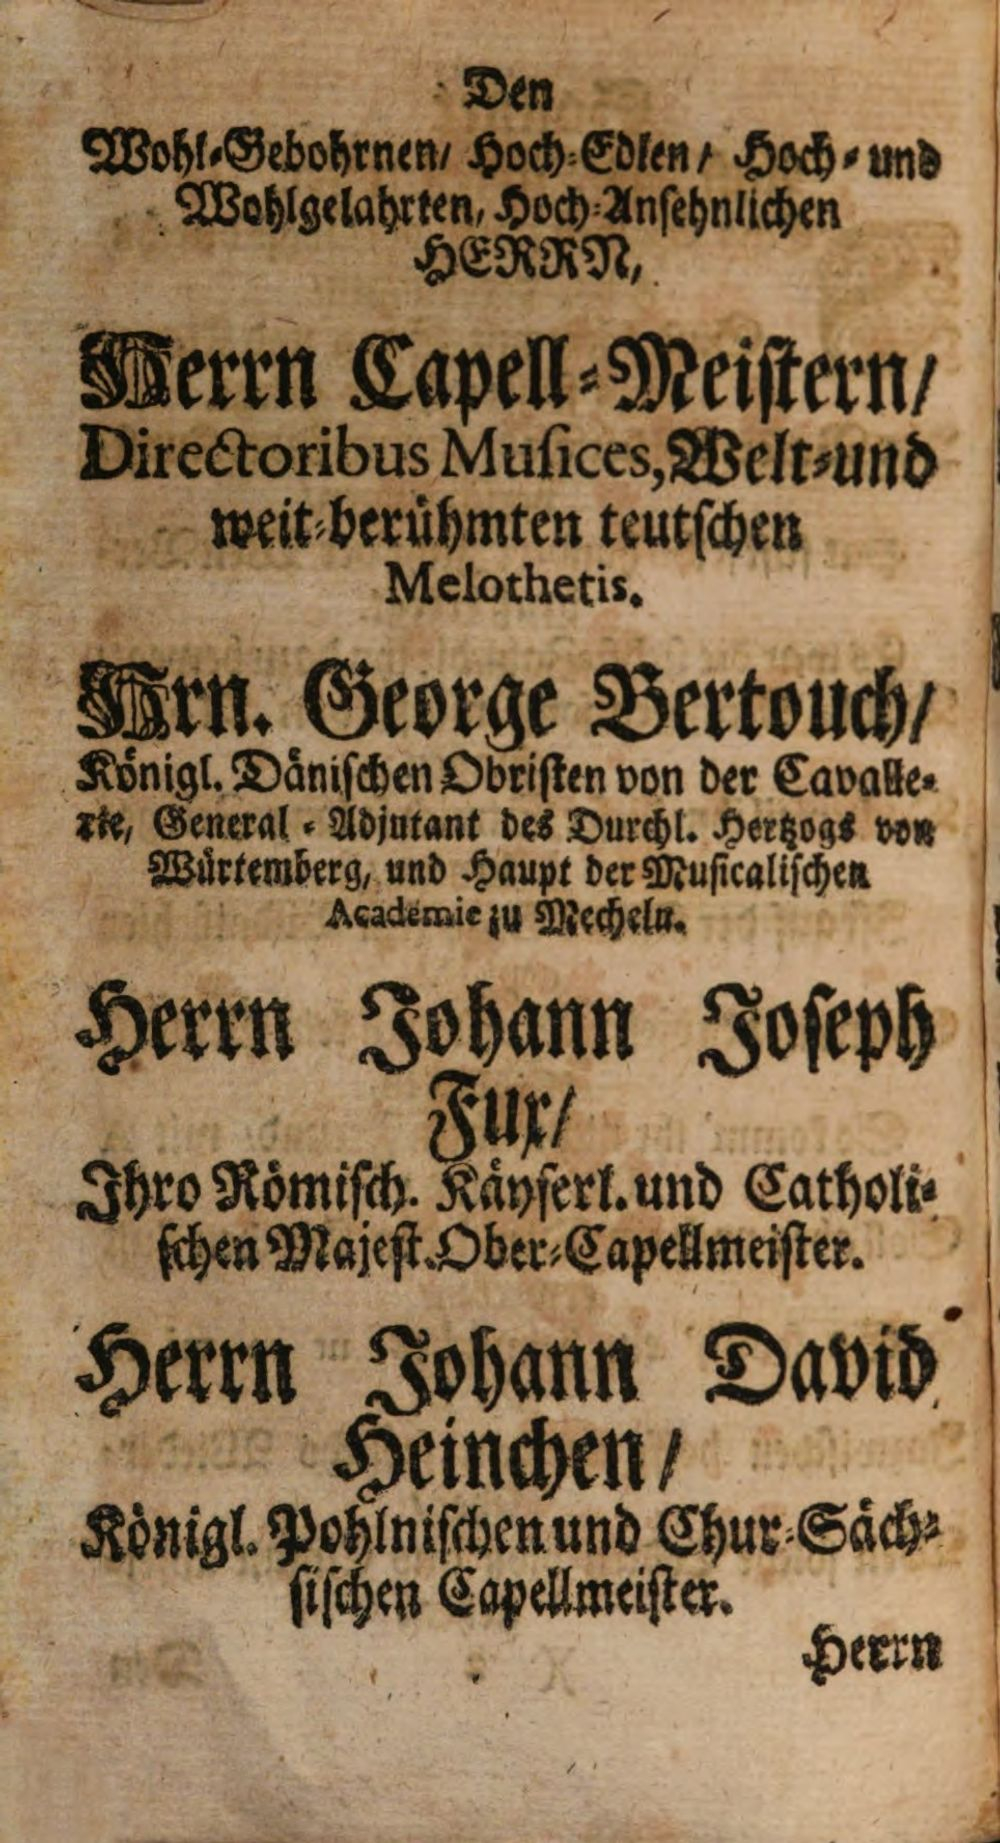 Den
Wohl-Gebohrnen/ Hoch-Edlen/ Hoch- und
Wohlgelahrten, Hoch-Ansehnlichen
HERRN,
Herrn Capell-Meistern/
Directoribus Musices, Welt-und
weit-berühmten teutschen
Melothetis.
Hrn. George Bertouch/
Königl. Dänischen Obristen von der Cavalle-
rie, General-Adjutant des Durchl. Hertzogs von
Würtemberg, und Haupt der Musicalischen
Academie zu Mecheln.
Herrn Johann Joseph
Fux/
Ihro Römisch. Käyserl. und Catholi-
schen Majest. Ober-Capellmeister.
Herrn Johann David
Heinchen/
Königl. Pohlnischen und Chur-Säch-
sischen Capellmeister.
Herrn